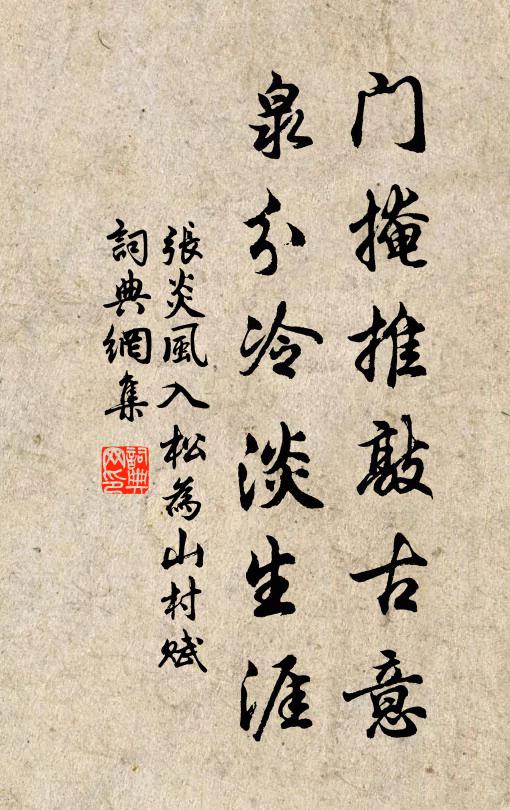 门掩推敲古意
泉分冷淡生涯
張炎風入松為山村赋
詞典網集
詞典
网印